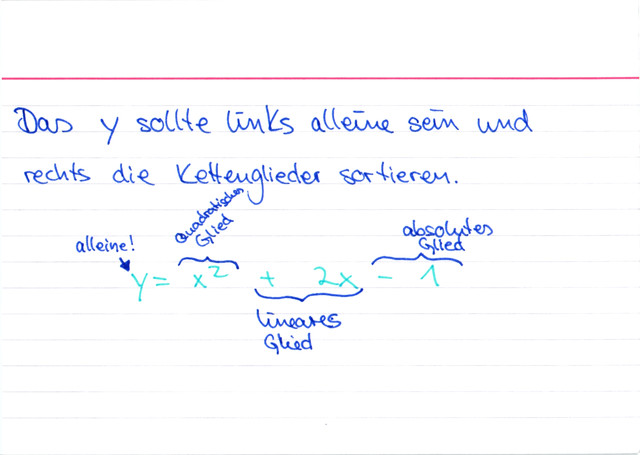 Das y sollte links alleine sein und
rechts die Kettenglieder sortieren.
alleine!
quadratisches
Glied
absolutes
Glied
y = x² + 2x - 1
lineares
Glied